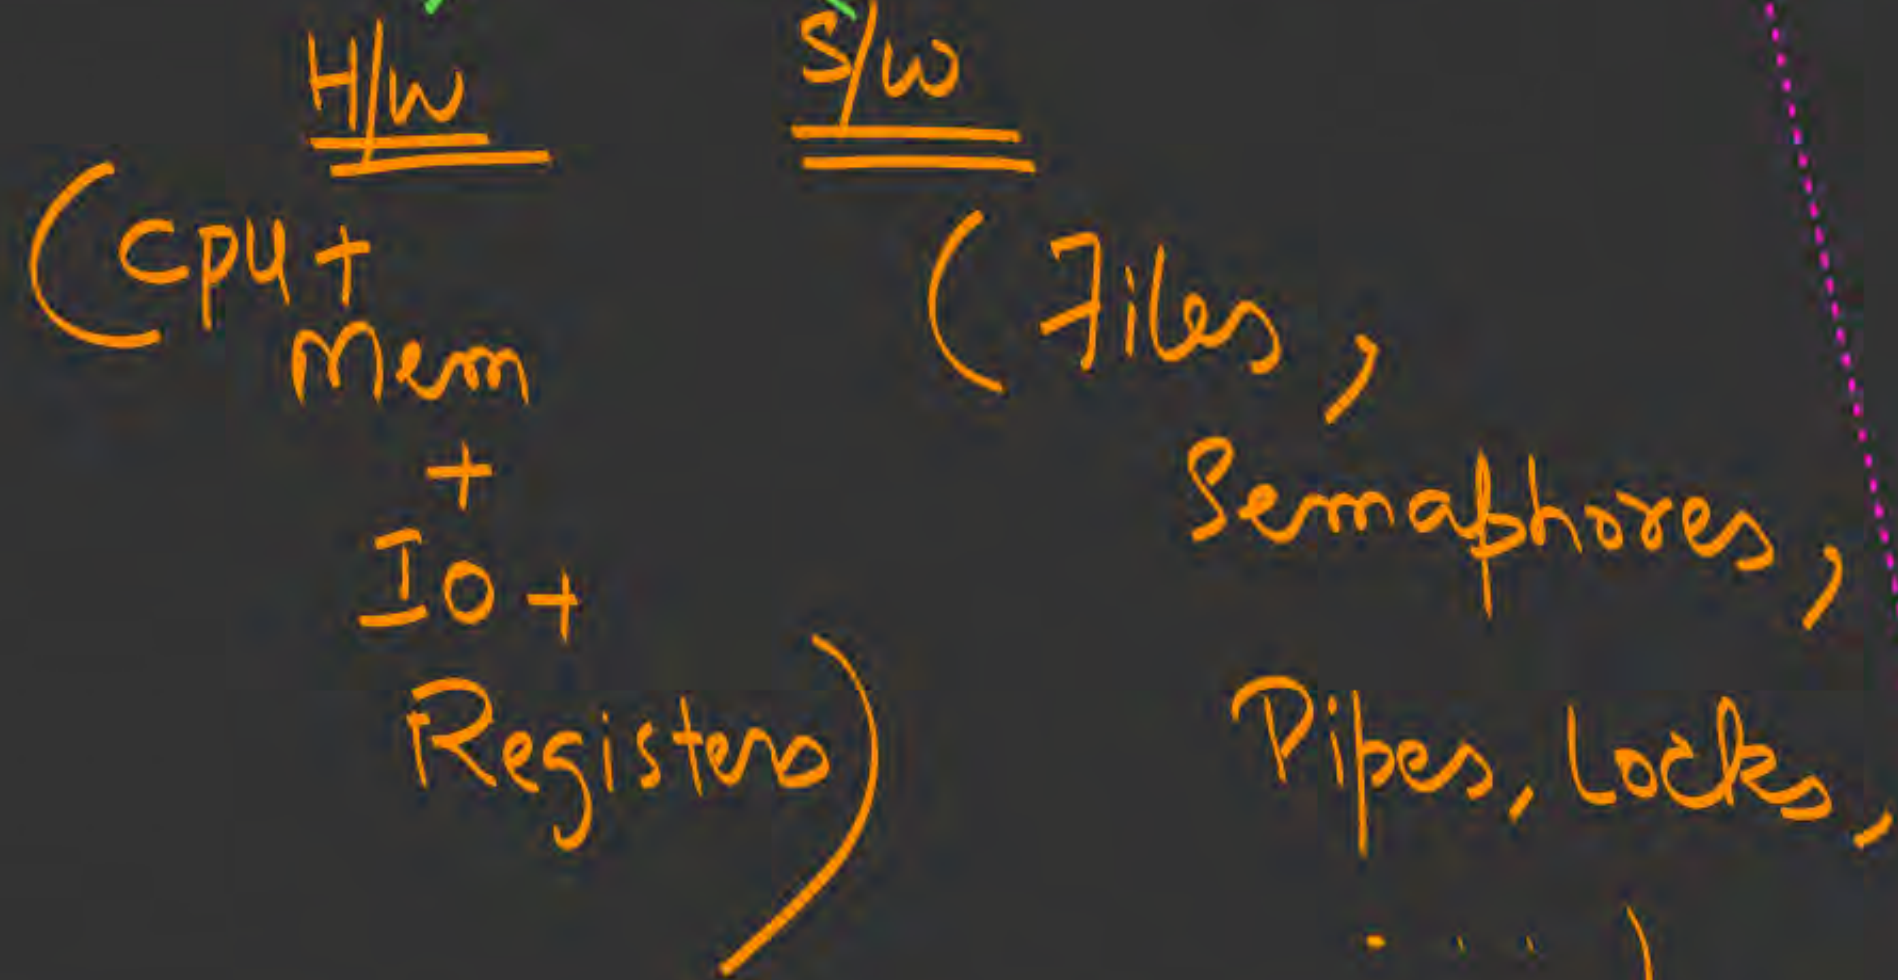 H/W
S/W
(CPU +
Mem
+
IO +
Registers)
(Files,
Semaphores,
Pipes, Locks,
....)